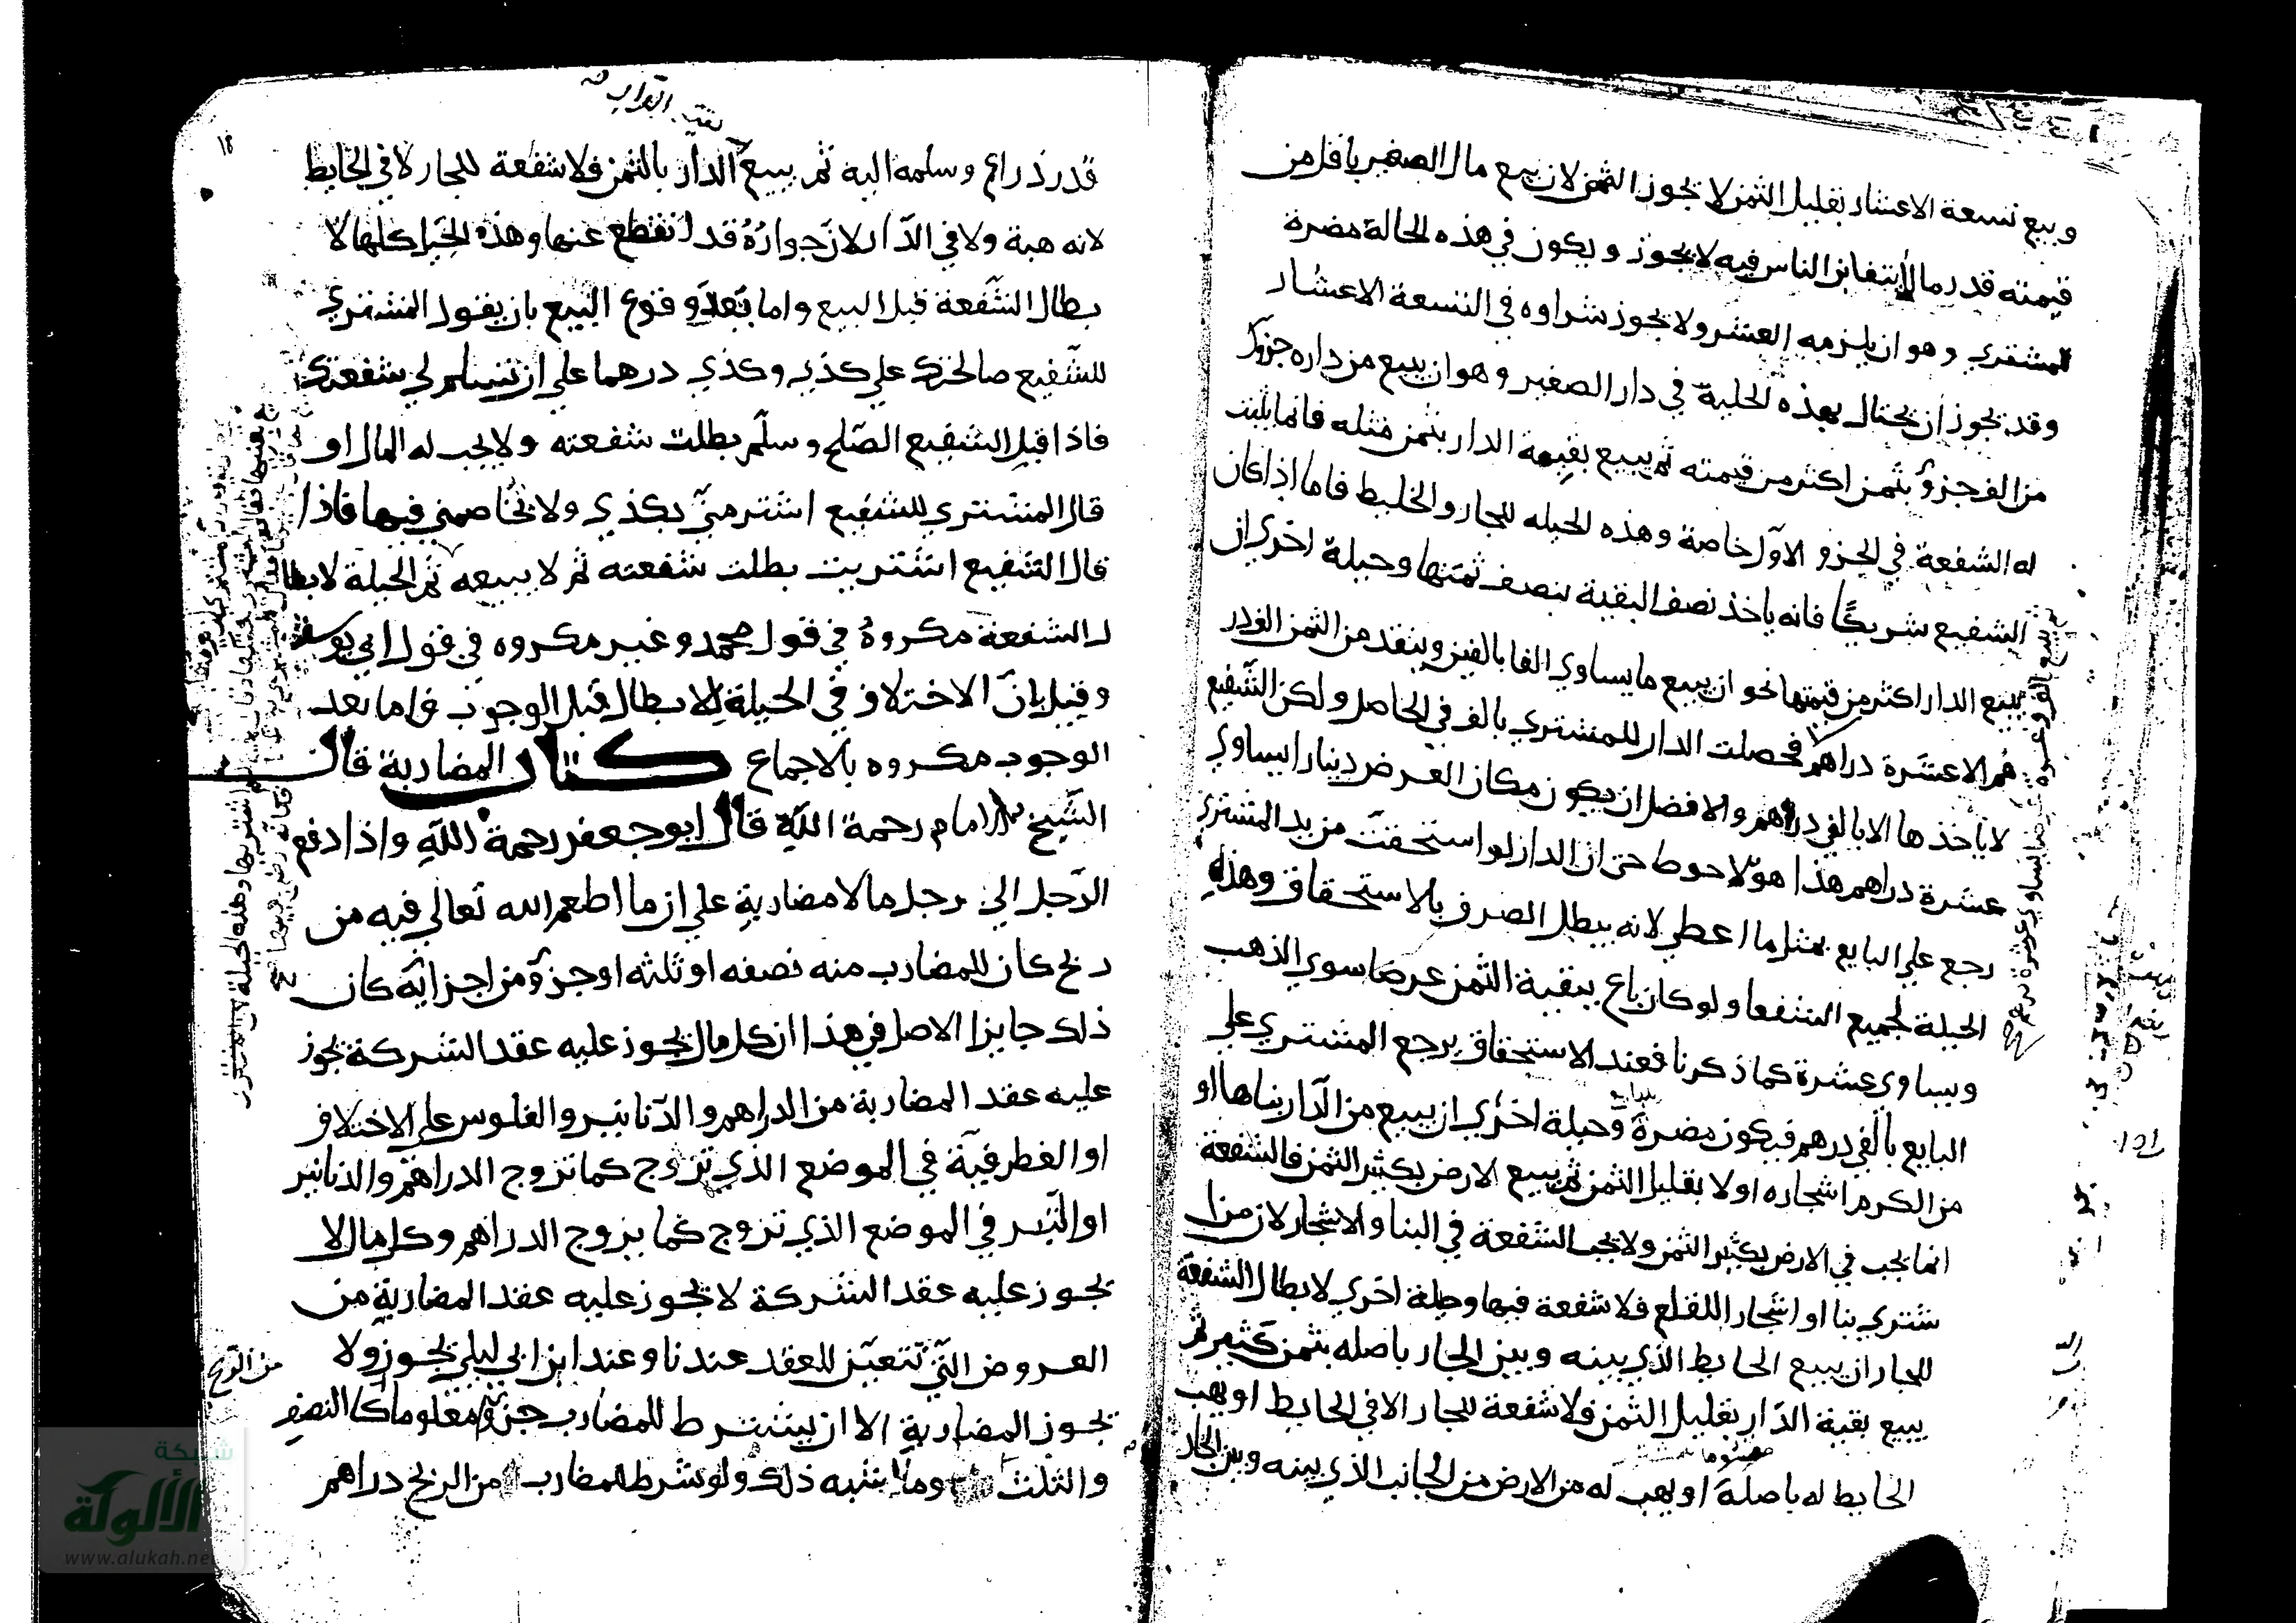 وبيع تسعة الاعشار بقليل الثمن لا يجوز الثمن لان بيع مال الصغير باقل من
قيمته قدر ما لا يتغابن الناس فيه لا يجوز ويكون في هذه الحالة مضرة
للمشتري وهو ان يلزمه العشر ولا يجوز شراوه في التسعة الاعشار
وقد يجوز ان يحتال بهذه الحلية في دار الصغير وهو ان يبيع من داره جزوا
من الف جزؤ بثمن اكثر من قيمته ثم يبيع بقيمة الدار بثمن مثله فانما يثبت
له الشفعة في الجزو الاول خاصة وهذه الحيله للجار والخليط فاما اذا كان
الشفيع شريكًا فانه ياخذ نصف البقية بنصف ثمنها وحيلة اخرى ان
يبيع الدار اكثر من قيمتها نحو ان يبيع ما يساوي الفا بالفين وينقد من الثمن الف
هم الا عشرة دراهم فحصلت الدار للمشتري بالف في الحاصل ولكن الشفيع
لا ياخذها الا بالفي دراهم والافضل ان يكون مكان العرض دينارا يساوي
عشرة دراهم هذا هو الاحوط حتى ان الدار لو استحقت من يد المشتري
رجع على البايع بمثل ما اعطي لانه يبطل الصرف بالاستحقاق وهذه
الحيلة لجميع الشفعا ولو كان باع ببقية الثمن عرضا سوى الذهب
ويساوي عشرة كما ذكرنا فعند الاستحقاق يرجع المشتري على
البايع بالفي درهم فيكون مضرة وحيلة اخرى ان يبيع من الدار بناها او
من الكرم اشجاره اولا بقليل الثمن ثم يبيع الارض بكثير الثمن فالشفعة
انما يجب في الارض بكثير الثمن ولا يجب الشفعة في البنا والاشجار لان من ا
شترى بنا او اشجارا للقلع فلا شفعة فيها وحيلة اخرى لابطال الشفعة
للجار ان يبيع الحايط الذي بينه وبين الجار باصله بثمن كثير ثم
يبيع بقية الدار بقليل الثمن فلا شفعة للجار الا في الحايط او يهب
الحايط له باصله او يهب له من الارض من الجانب الذي بينه وبين الجار
قدر ذراع وسلمه اليه ثم يبيع الدار بالثمن فلا شفعة للجار لا في الحايط
لانه هبة ولا في الدار لان جواره قد انقطع عنها وهذه الحيل كلها لا
بطال الشفعة قبل البيع واما بعد وقوع البيع بان يقول المشتري
للشفيع صالحتك على كذي وكذي درهما على ان تسلم لي شفعتك
فاذا قبل الشفيع الصلح وسلم بطلت شفعته ولا يجب له المال او
قال المشتري للشفيع اشتر مني بكذي ولا تخاصمني فيها فاذا
قال الشفيع اشتريت بطلت شفعته ثم لا يبيعه ثم الحيلة لابطا
ل الشفعة مكروه في قول محمد وغير مكروه في قول ابي يوسف
وقيل بان الاختلاف في الحيلة لابطال قبل الوجوب فاما بعد
الوجوب مكروه بالاجماع كتاب المضاربة قال
الشيخ الامام رحمة الله قال ابو جعفر رحمة الله واذا دفع
الرجل الى رجل مالا مضاربة على ان ما اطعم الله تعالى فيه من
ربح كان للمضارب منه نصفه او ثلثه او جزؤ من اجزايه كان
ذلك جايزا الاصل في هذا ان كل مال يجوز عليه عقد الشركة يجوز
عليه عقد المضاربة من الدراهم والدنانير والفلوس على الاختلاف
او الغطريفية في الموضع الذي تروج كما تروج الدراهم والدنانير
او التبر في الموضع الذي تروج كما يروج الدراهم وكل مال لا
يجوز عليه عقد الشركة لا يجوز عليه عقد المضاربة من
العروض التي تتعين للعقد عندنا وعند ابن ابي ليلى يجوز ولا
من الربح
يجوز المضاربة الا ان يشترط للمضارب جزؤا معلوما كالنصف
والثلث وما يشبه ذلك ولو شرط للمضارب من الربح دراهم
شبكة
الألوكة
www.alukah.net